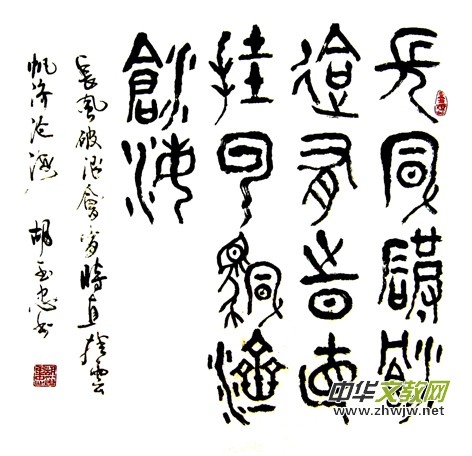 長風破浪
會有時直
挂雲帆濟
滄海
長風破浪會有時直挂雲
帆济沧海 胡玉忠书
中华文教网
www.zhwjw.net